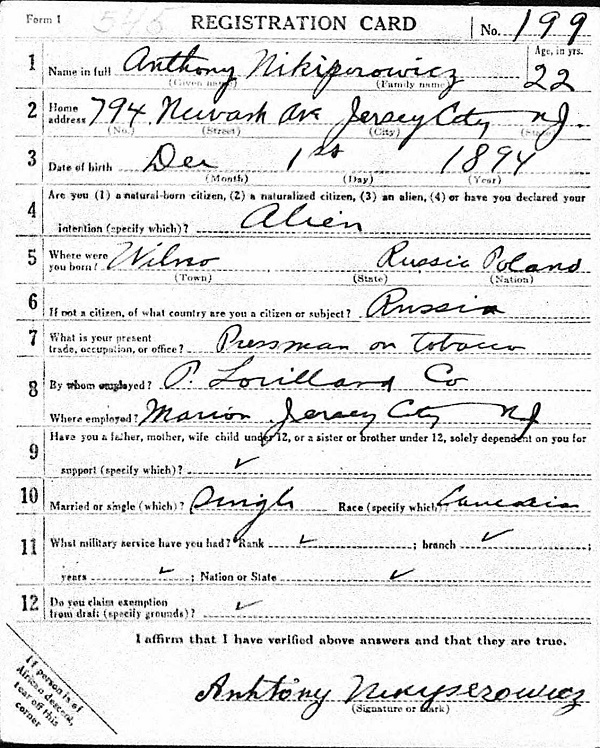 Form 1 545 REGISTRATION CARD No. 199
1 Name in full Anthony Nikiperowicz Age, in yrs. 22
(Given name) (Family name)
2 Home address 794 Newark Ave Jersey City NJ.
(No.) (Street) (City) (State)
3 Date of birth Dec 1st 1894
(Month) (Day) (Year)
Are you (1) a natural-born citizen, (2) a naturalized citizen, (3) an alien, (4) or have you declared your
4 intention (specify which)? Alien
5 Where were you born? Wilno Russia Poland
(Town) (State) (Nation)
6 If not a citizen, of what country are you a citizen or subject? Russia
7 What is your present trade, occupation, or office? Pressman on tobacco
8 By whom employed? P. Lorilland Co
Where employed? Marion Jersey City NJ
9 Have you a father, mother, wife child under 12, or a sister or brother under 12, solely dependent on you for
support (specify which)? ✓
10 Married or single (which)? Single Race (specify which) Caucasia
11 What military service have you had? Rank ✓ ; branch ✓ ;
years ✓ ; Nation or State ✓
12 Do you claim exemption from draft (specify grounds)? ✓
I affirm that I have verified above answers and that they are true.
If person is of
African descent,
tear off this
corner
Anhtony Nikyserowicz
(Signature or mark)